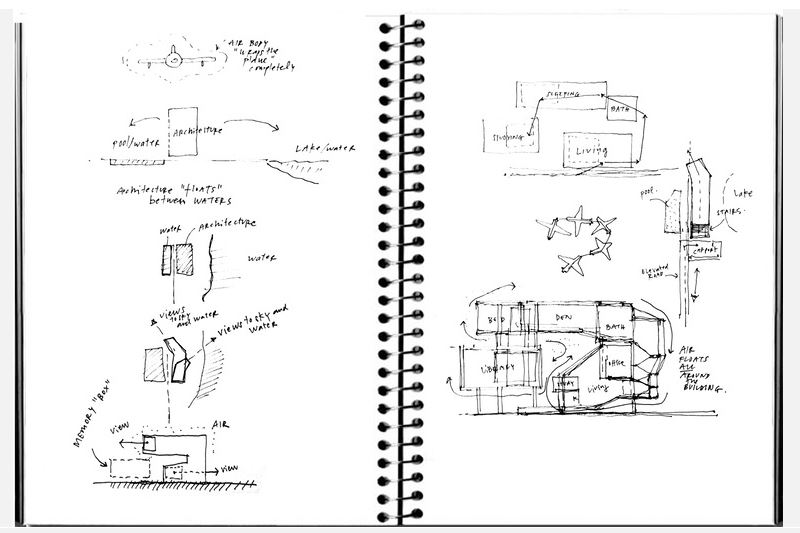 AIR BODY
"WRAPS THE
PLANE"
COMPLETELY
Architecture
pool/water
LAKE/WATER
Architecture "floats"
between WATERS
water
Architecture
water
views
to sky
and water
views to sky and
water
MEMORY "BOX"
VIEW
AIR
VIEW
SLEEPING
BATH
STUDYING
Living
pool
Lake
STAIRS
CARPORT
ELEVATED
ROAD
BED
DEN
BATH
LIBRARY
office
living
AIR
FLOATS
ALL
AROUND
THE
BUILDING.